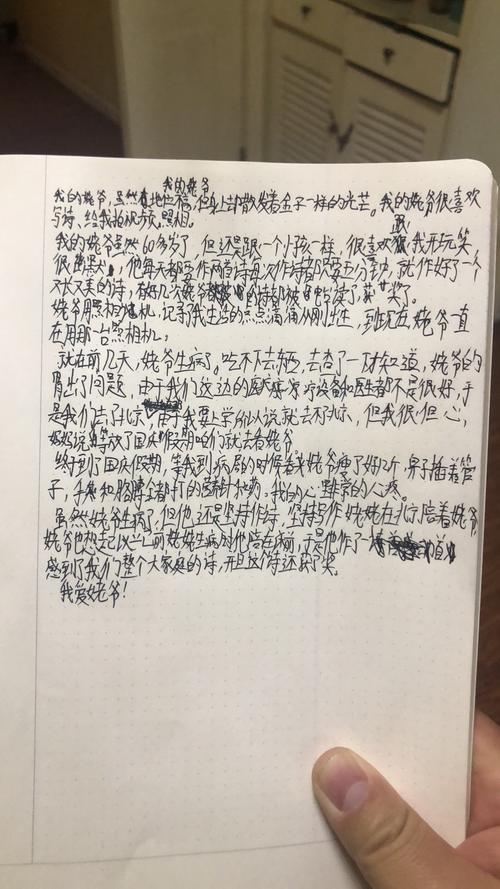 我的姥爷
我的姥爷,虽然有地位福,但身上却散发着金子一样的光芒。我的姥爷很喜欢
写诗、给我拍照。
我的姥爷虽然60多岁了,但还是跟一个小孩一样,很喜欢跟我开玩笑
很幽默,他每天都写作两首诗每次作诗都只要五分钟,就作好了一个
又长又美的诗,有好几次姥爷的诗都被了获奖了。
姥爷用照相机,记录了我生活的点点滴滴从刚出生,到现在姥爷一直
在用那一台照相机。
就在前几天,姥爷生病了。吃不下去东西,去查了一下才知道,姥爷的
胃出了问题,由于我们这边的医疗设备和医生都不是很好,于
是我们去了北京,由于我要上学所以说就去不了北京,但我很但心,
妈妈说等放了国庆假期咱们就去看姥爷。
终于到了国庆假期,等我到病房的时候看姥爷瘦了好几斤,鼻子插着管
子,手和胳膊全都打的针和药。我的心里非常的心疼。
虽然姥爷生病了,但他还是坚持作诗,坚持写作姥姥在北京陪着姥爷
姥爷也想起以前姥姥生病时他陪在病前,于是他作了一首
感到了我们整个大家庭的诗,并且这个诗还获了奖。
我爱姥爷!